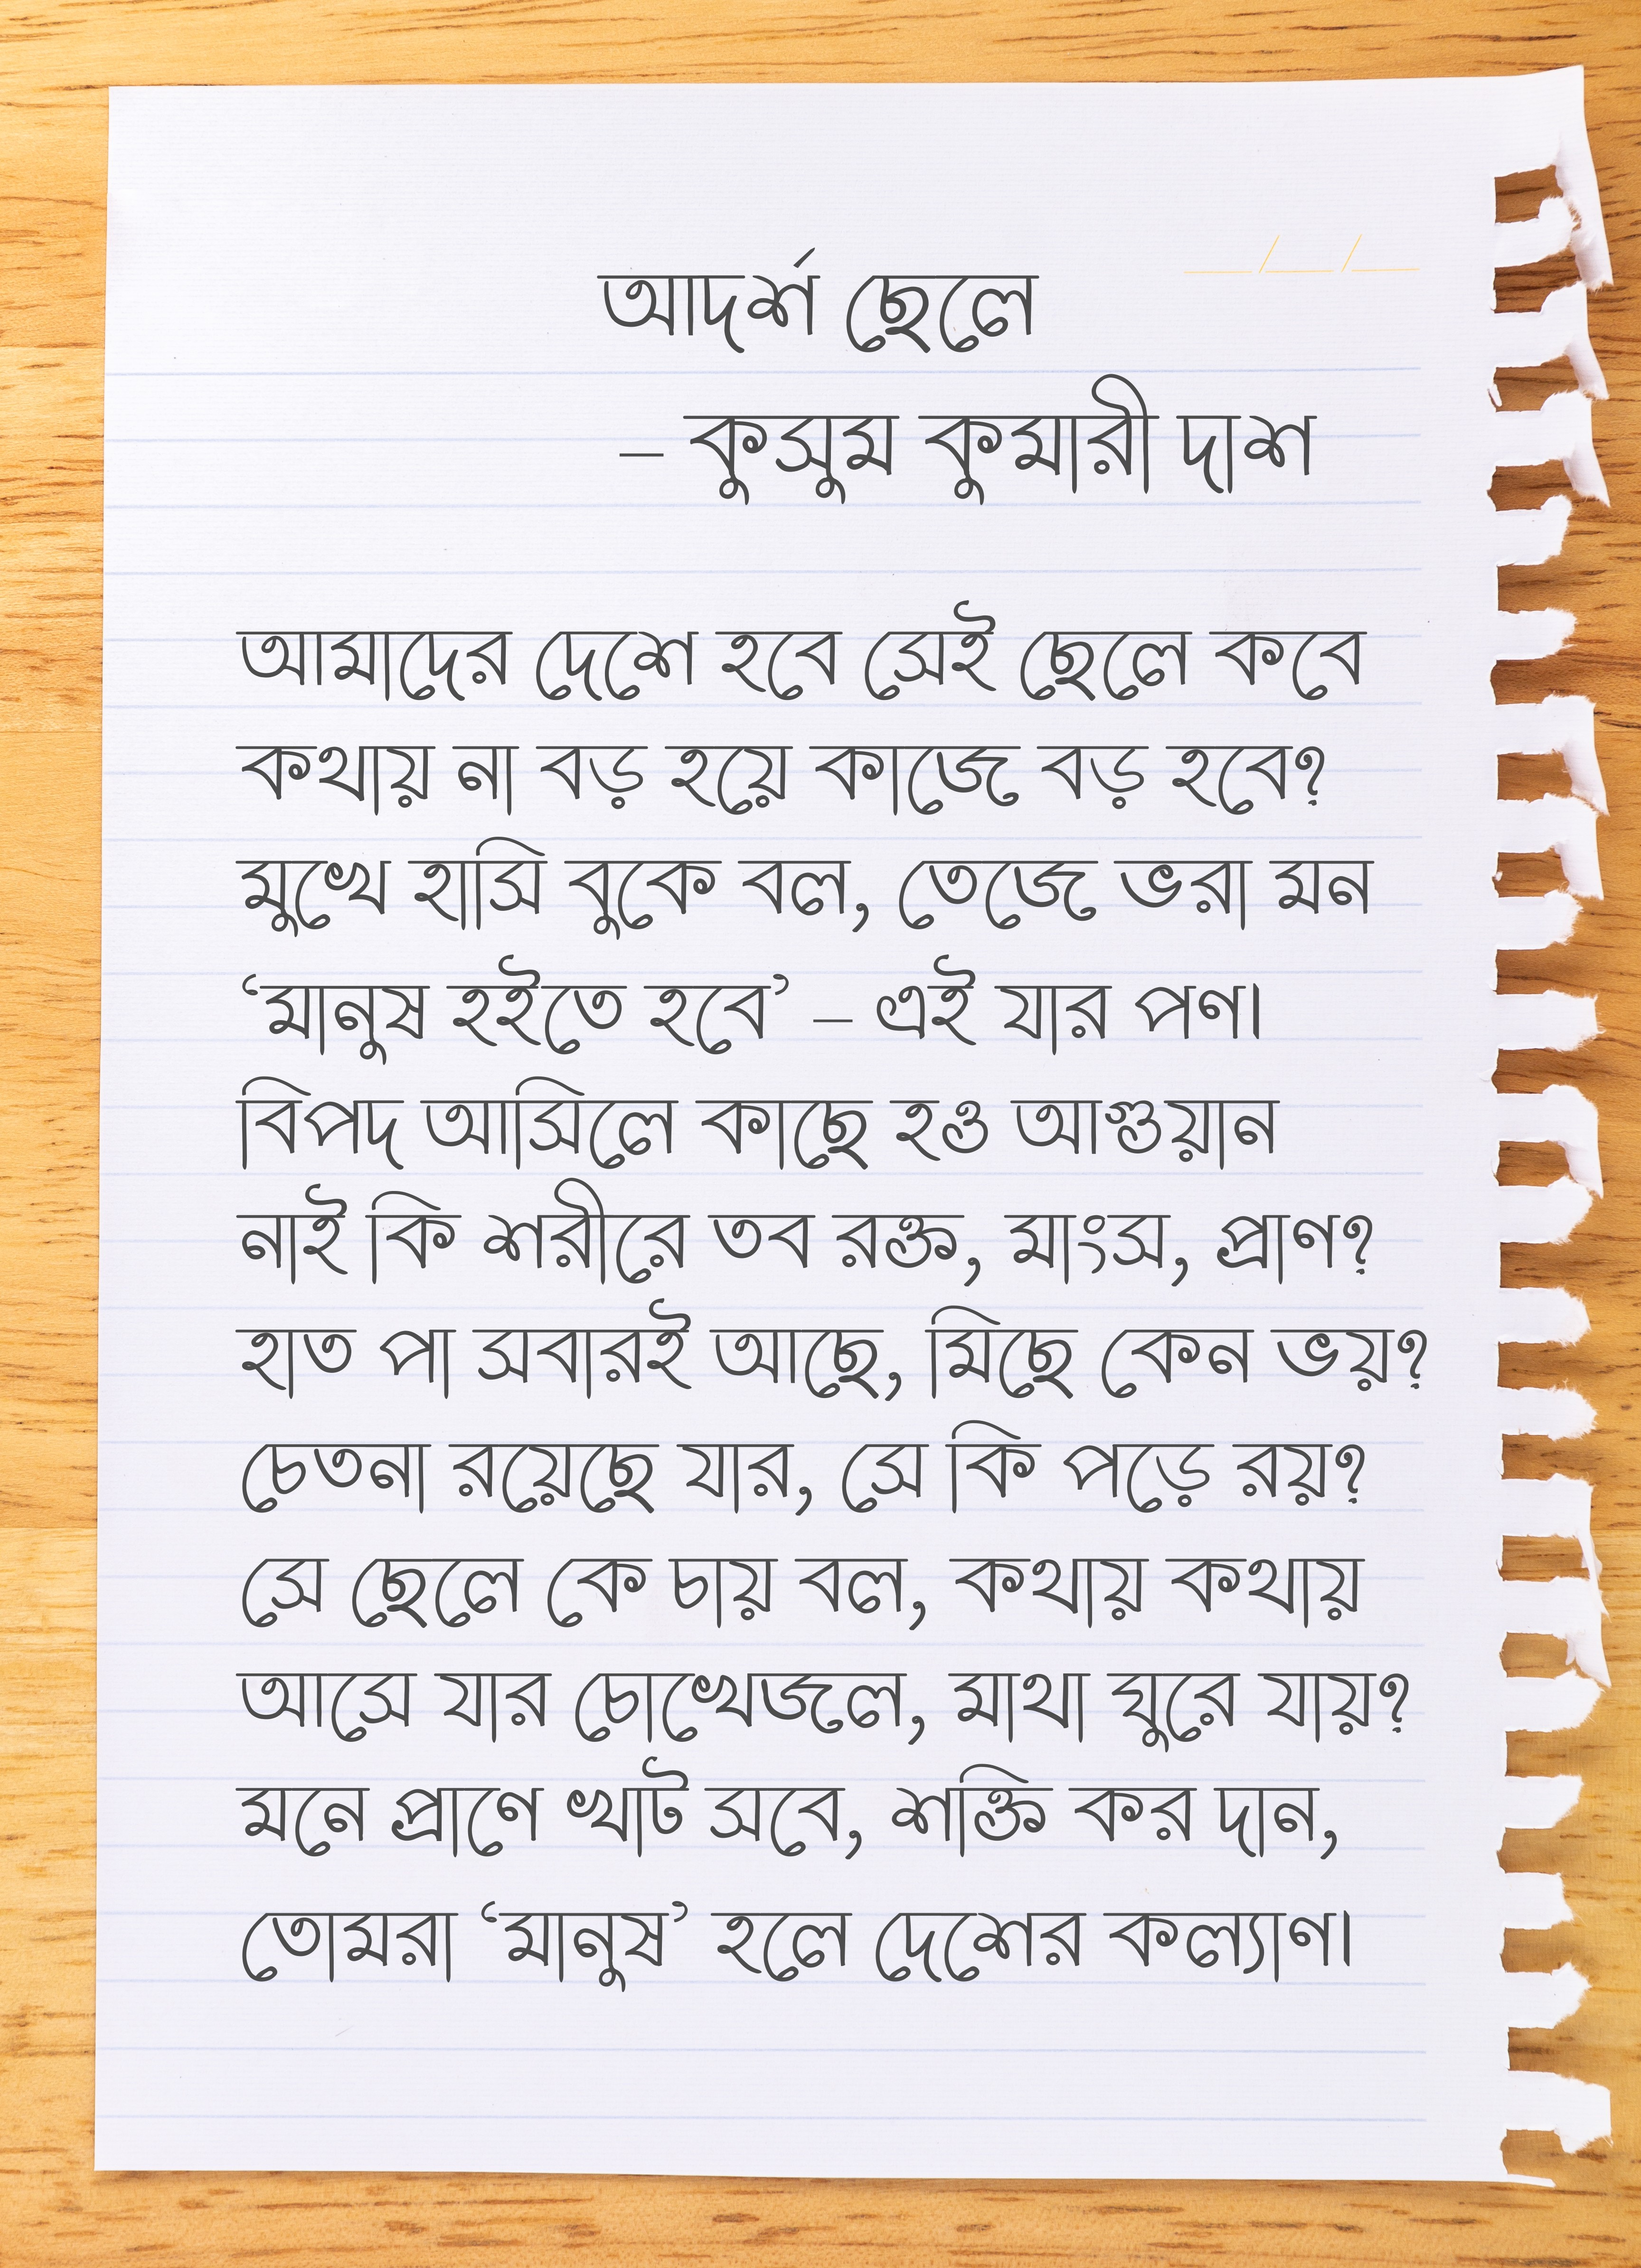 আদর্শ ছেলে
– কুসুম কুমারী দাশ
আমাদের দেশে হবে সেই ছেলে কবে
কথায় না বড় হয়ে কাজে বড় হবে?
মুখে হাসি বুকে বল, তেজে ভরা মন
‘মানুষ হইতে হবে’ – এই যার পণ।
বিপদ আসিলে কাছে হও আগুয়ান
নাই কি শরীরে তব রক্ত, মাংস, প্রাণ?
হাত পা সবারই আছে, মিছে কেন ভয়?
চেতনা রয়েছে যার, সে কি পড়ে রয়?
সে ছেলে কে চায় বল, কথায় কথায়
আসে যার চোখেজল, মাথা ঘুরে যায়?
মনে প্রাণে খাট সবে, শক্তি কর দান,
তোমরা ‘মানুষ’ হলে দেশের কল্যাণ।